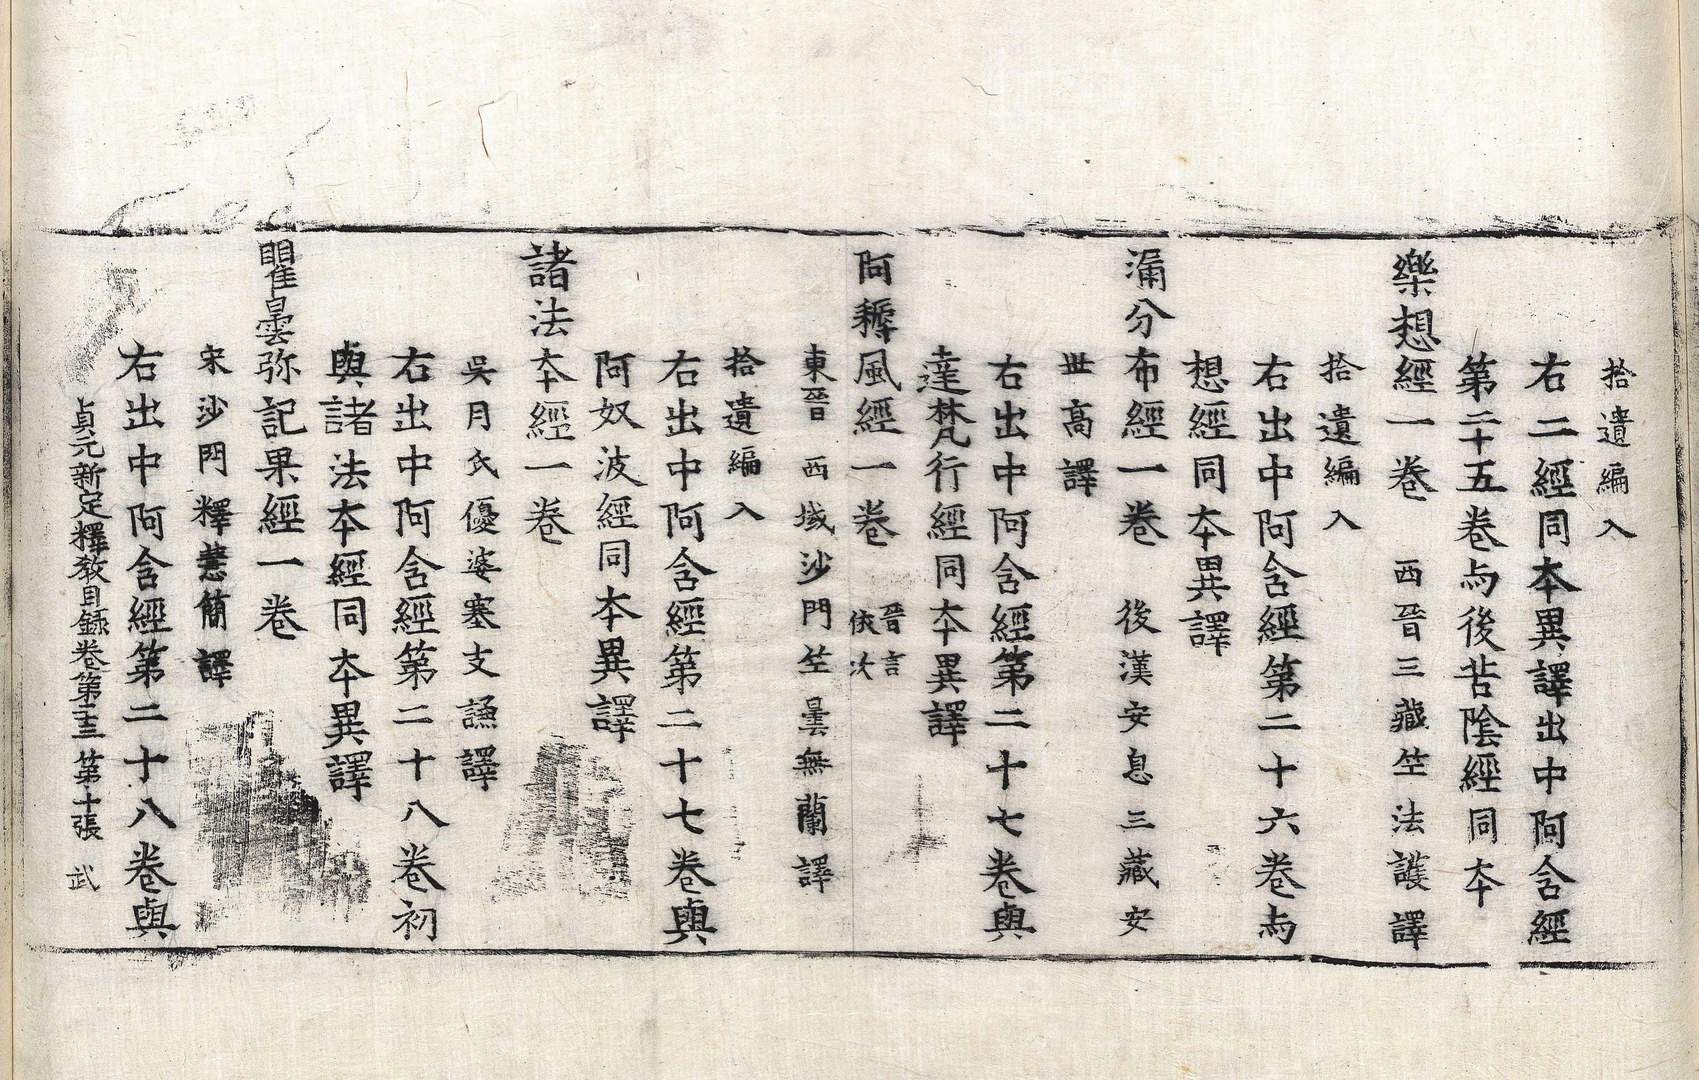 拾遺編入
右二經同夲異譯出中阿含經
第二十五卷与後苦陰經同夲
樂想經一卷　西晉三藏竺法護譯
拾遺編入
右出中阿含經第二十六卷与
想經同夲異譯
漏分布經一卷　後漢安息三藏安
世高譯
右出中阿含經第二十七卷與
達梵行經同夲異譯
阿耨風經一卷　晉言依次
東晉　西域沙門竺曇無蘭譯
拾遺編入
右出中阿含經第二十七卷與
阿奴波經同夲異譯
諸法夲經一卷
吳月氏優婆塞支謙譯
右出中阿含經第二十八卷初
與諸法夲經同夲異譯
瞿曇弥記果經一卷
宋沙門釋慧簡譯
右出中阿含經第二十八卷與
貞元新定釋教目錄卷第二十三　第十張　武